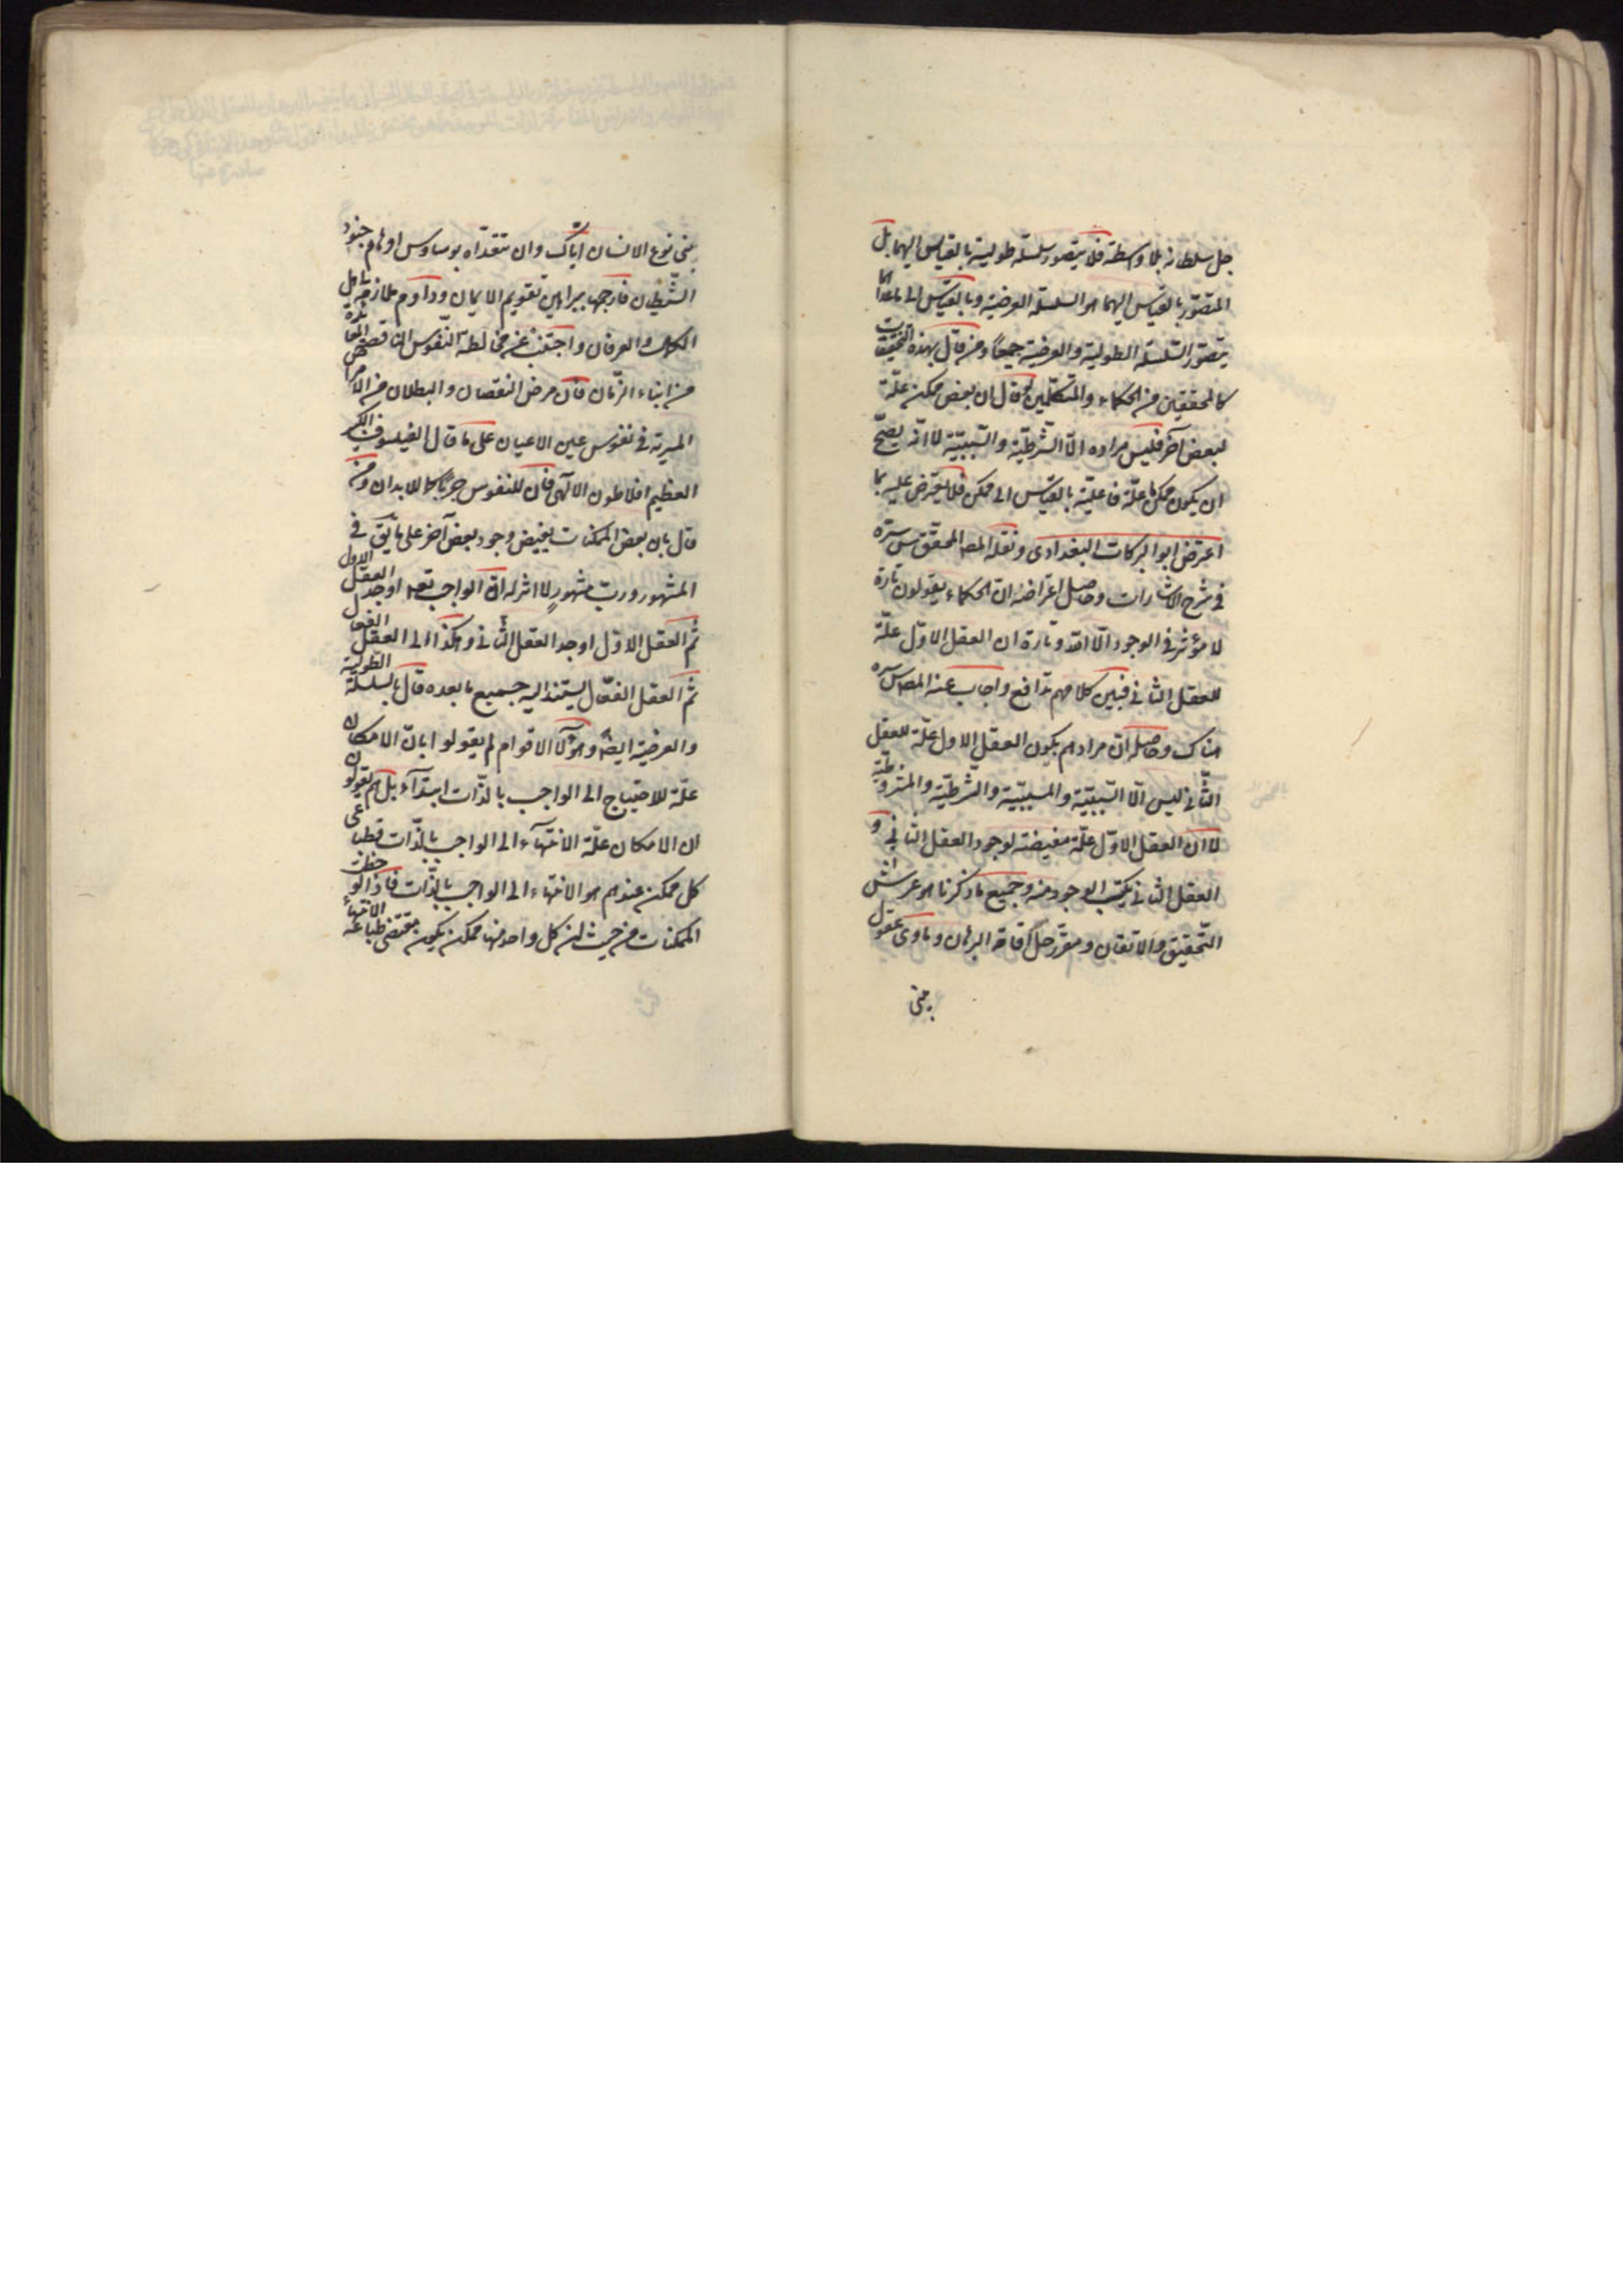 جل سلطانه بلا واسطة فلا يتصور سلسلة طولية بالقياس اليهما بل
المتصوّر بالقياس اليهما هو السلسلة العرضية وبالقياس الى ما عداهما
يتصوّر السّلسلة الطولية والعرضية جميعاً ومن قال بهذه التحقيقات
كالمحققين من الحكماء والمتكلّمين لو قال ان بعض ممكن علّة
لبعض آخر فليس مراده الّا الشّرطيّة والسّببيّة لا انّه يصحّ
ان يكون ممكن ما علّة فاعليّة بالقياس الى ممكن فلا يعترض عليه بما
اعترض ابو البركات البغدادى ونقله المص المحقق س سرّه
فى شرح الاشارات وحاصل اعتراضه ان الحكماء يقولون تارة
لا مؤثر فى الوجود الّا الله وتارة ان العقل الاوّل علّة
للعقل الثانى فبين كلامهم تدافع واجاب عنه المص س سره
هناك وحاصله انّ مرادهم بكون العقل الاول علّة للعقل
الثّانى ليس الّا السّببيّة والمسببيّة والشّرطيّة والمشروطيّة
لا انّ العقل الاوّل علّة مفيضة لوجود العقل الثانى و
العقل الثانى يكتسب الوجود منه وجميع ما ذكرنا هو عرش
التّحقيق والاتقان ومقرّ رحل اقامة البرهان وماوى عقول
بنى
بنى نوع الانسان ايّاك وان تتعدّاه بوساوس اوهام جنود
الشّيطان فارجمها ببراهين تقويم الايمان وداوم ملازمة اهل
الكمال والعرفان واجتنب عن مخالطة النّفوس الناقصة
من ابناء الزّمان فانّ مرض النقصان والبطلان من الامراض
المسرية فى نفوس عين الاعيان على ما قال الفيلسوف الكبير
العظيم افلاطون الالهى فانّ للنفوس جربًا كما للابدان ومن
قال بان بعض الممكنات يفيض وجود بعض آخر على ما يق فى
المشهور وربّ مشهور لا اثر له انّ الواجب تعه اوجد العقل الاول
ثم العقل الاوّل اوجد العقل الثّانى وهكذا الى العقل الفعال
ثم العقل الفعّال يستند اليه جميع ما بعده قال بالسلسلة الطولية
والعرضية ايضاً وهؤلاء الاقوام لم يقولوا بانّ الامكان
علّة للاحتياج الى الواجب بالذّات ابتدآء بل هم يقولون
ان الامكان علّة الانتهآء الى الواجب بالذّات فطباعى
كل ممكن عندهم هو الانتهاء الى الواجب بالذّات فاذا لوحظت
الممكنات من حيث ان كل واحد منها ممكن يكون مقتضى طباعه الانتهاء